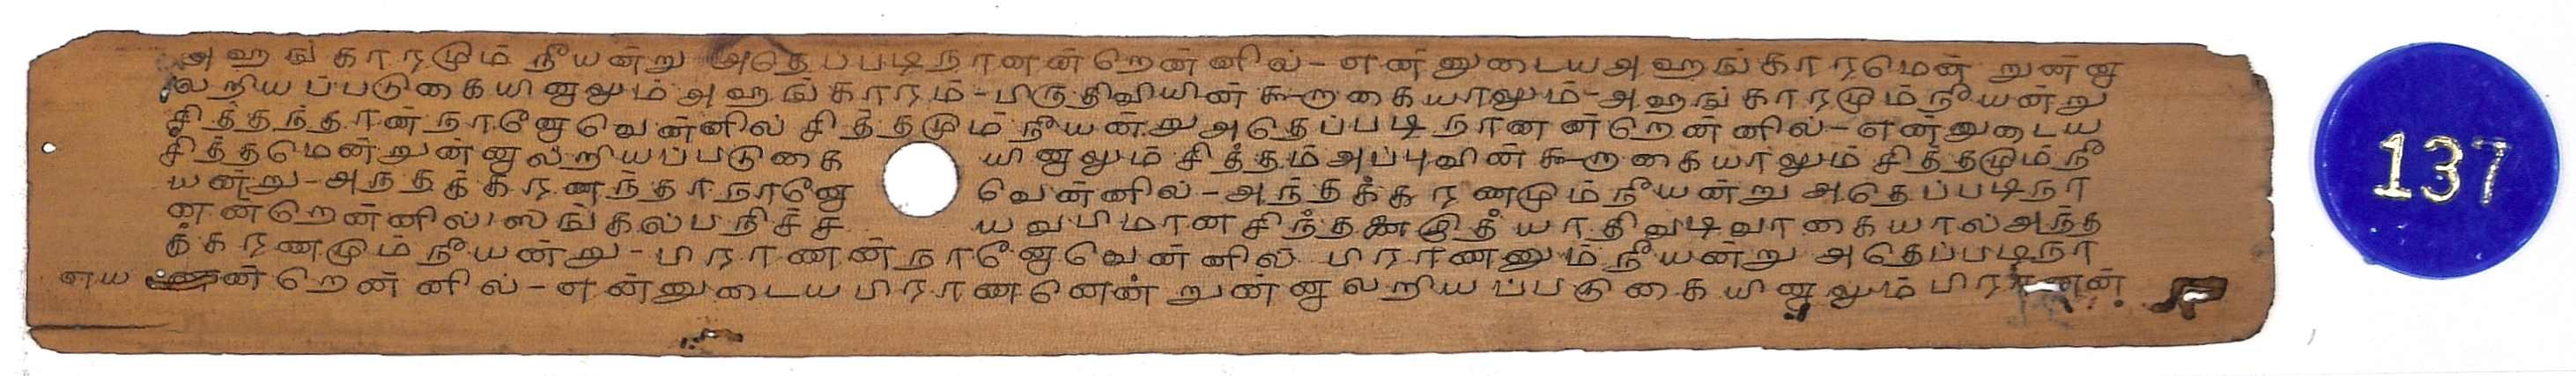 அஹங்காரமும் நீயன்று அதெப்படிநானன்றென்னில்-என்னுடையஅஹங்காரமென் றுன்னு
லறியப்படுகையினுலும்அஹங்காரம்-பிருதிவியின் கூறுகையாலும்-அஹங்காரமும்நீயன்று
சித்தந்தான்நானேவென்னில் சித்தமும் நீயன்றுஅதெப்படி நானன்றென்னில்-என்னுடைய
சித்தமென்றுன்னுலறியப்படுகை யினுலும் சித்தம்அப்புவின் கூறுகையாலும் சித்தமும்நீ
யன்று-அந்தக்கரணந்தாநானே வென்னில்-அந்தக்கரணமும்நீயன்று அதெப்படிநா
னன்றென்னில் ஸங்கல்பநிச்ச யவபிமானசிந்தனை யாதிவடிவாகையால்அந்த
க்கரணமும்நீயன்று-பிராணன்நானேவென்னில் பிராணனும்நீயன்று அதெப்படிநா
னன்றென்னில்-என்னுடையபிராணனென் றுன்னுலறியப்படுகையினுலும்
137